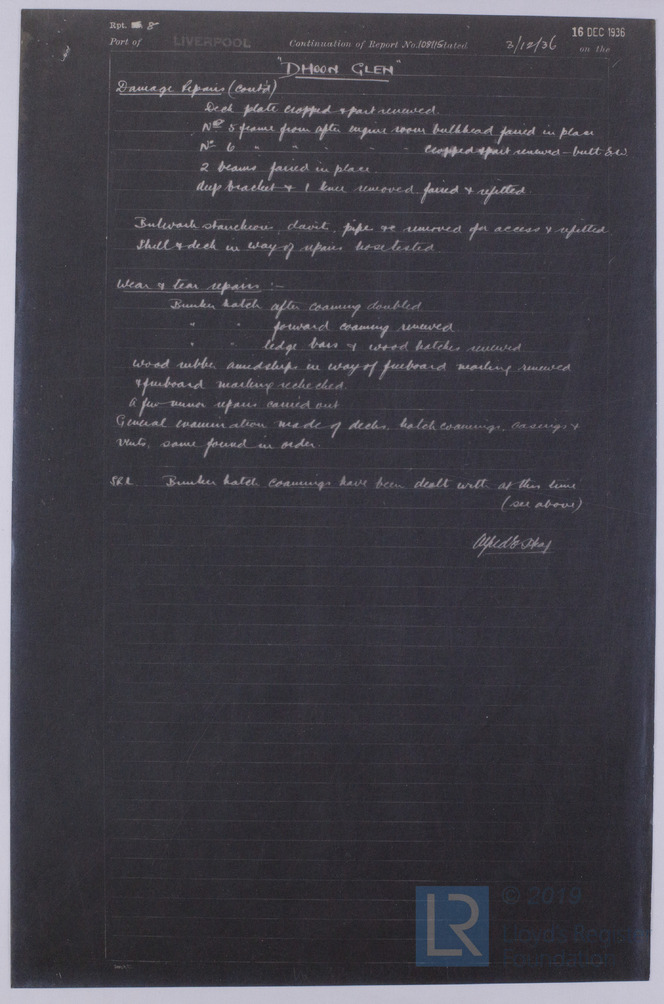 Rpt. 8
16 DEC 1936
Port of LIVERPOOL Continuation of Report No. 109115 dated 3/12/36 on the
"DHOON GLEN"
Damage Repairs (cont'd)
Deck plate cropped & part renewed.
No 5 frame from after engine room bulkhead faired in place
No 6 " " " " " cropped & part renewed – butt E.W.
2 beams faired in place.
deep bracket & 1 knee removed faired & refitted.
Bulwark stanchions, davit, pipe &c removed for access & refitted
Shell & deck in way of repairs hose tested
Wear & tear repairs :-
Bunker hatch after coaming doubled
" " forward coaming renewed
" " ledge bars & wood hatches renewed
Wood rubber amidships in way of freeboard marking renewed
& freeboard marking rechecked.
A few minor repairs carried out
General examination made of decks, hatch coamings, casings &
vents, same found in order.
Bunker hatch coamings have been dealt with at this time
(see above)
Alfred E.
LR
© 2019
Lloyd's Register
Foundation